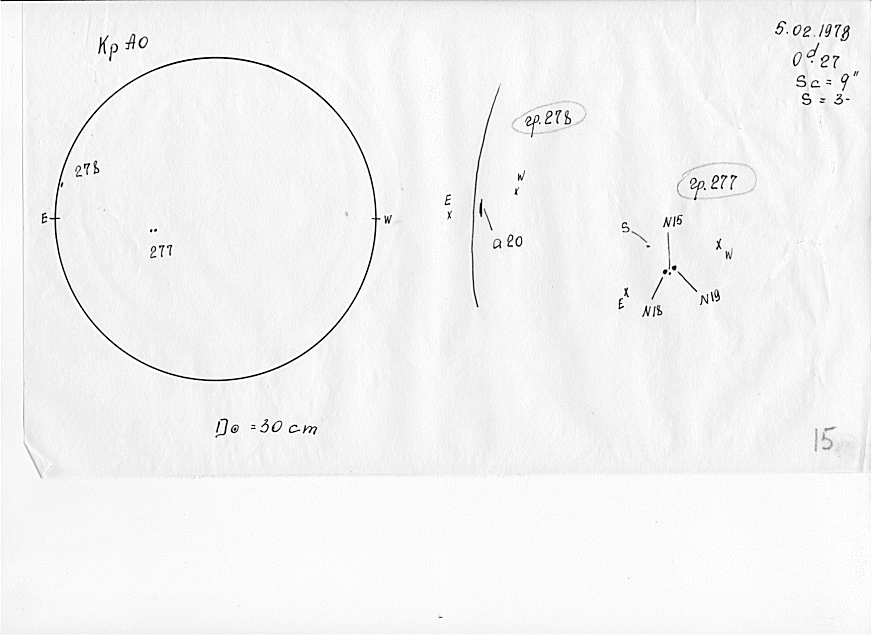 Кр АО
5.02.1978
0ᵈ.27
Sc = 9"
S = 3-
278
E
W
277
D⊙ = 30 cm
гр.278
E
x
W
x
a 20
гр.277
S
N15
x
W
x
E
N18
N19
15